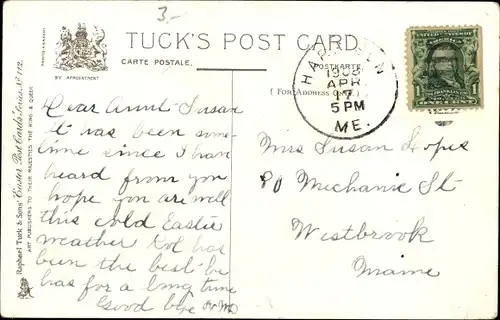 3.-
TUCK'S POST CARD
CARTE POSTALE.
POSTKARTE
BY APPOINTMENT
(FOR ADDRESS
HA EN
1909
APR
17
5 PM
ME.
1
ONE CENT
Raphael Tuck & Sons' "Easter" Post Cards Series No 112.
ART PUBLISHERS TO THEIR MAJESTIES THE KING & QUEEN
Dear Aunt Susan
it was been som-
time since I han
heard from you
hope you are well
this cold Easter
weather has
been the best he
has for a long time
Good bye
Miss Susan Lopes
80 Mechanic St
Westbrook
Maine